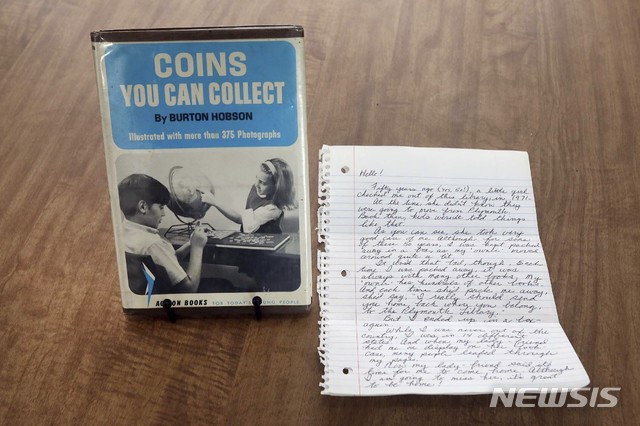 COINS
YOU CAN COLLECT
By BURTON HOBSON
Illustrated with more than 375 Photographs
ACTION BOOKS FOR TODAY'S YOUNG PEOPLE
Hello!
Fifty years ago (yes, 50!), a little girl
checked me out of this library, in 1971.
At the time she didn't know they
were going to move from Plymouth.
Back then kids weren't told things
like that.
As you can see, she took very
good care of me. Although for some
of these 50 years, I was kept packed
away in a box, as my "owner" moved
around quite a bit.
So wasn't that bad, though. Each
time I was packed away, it was
always with many other books. My
"owner" has hundreds of other books.
And each time she'd pack me away,
she'd say, I really should send
you home, back where you belong,
to the Plymouth Library.
But I ended up in a box
again.
While I was never out of the
country, I was in 14 different
states. And when my lady friend
had me on display on her book
case, many people leafed through
my pages.
Now my lady friend said it's
time for me to come home. Although
I am going to miss her, it's great
to be home!
NEWSIS